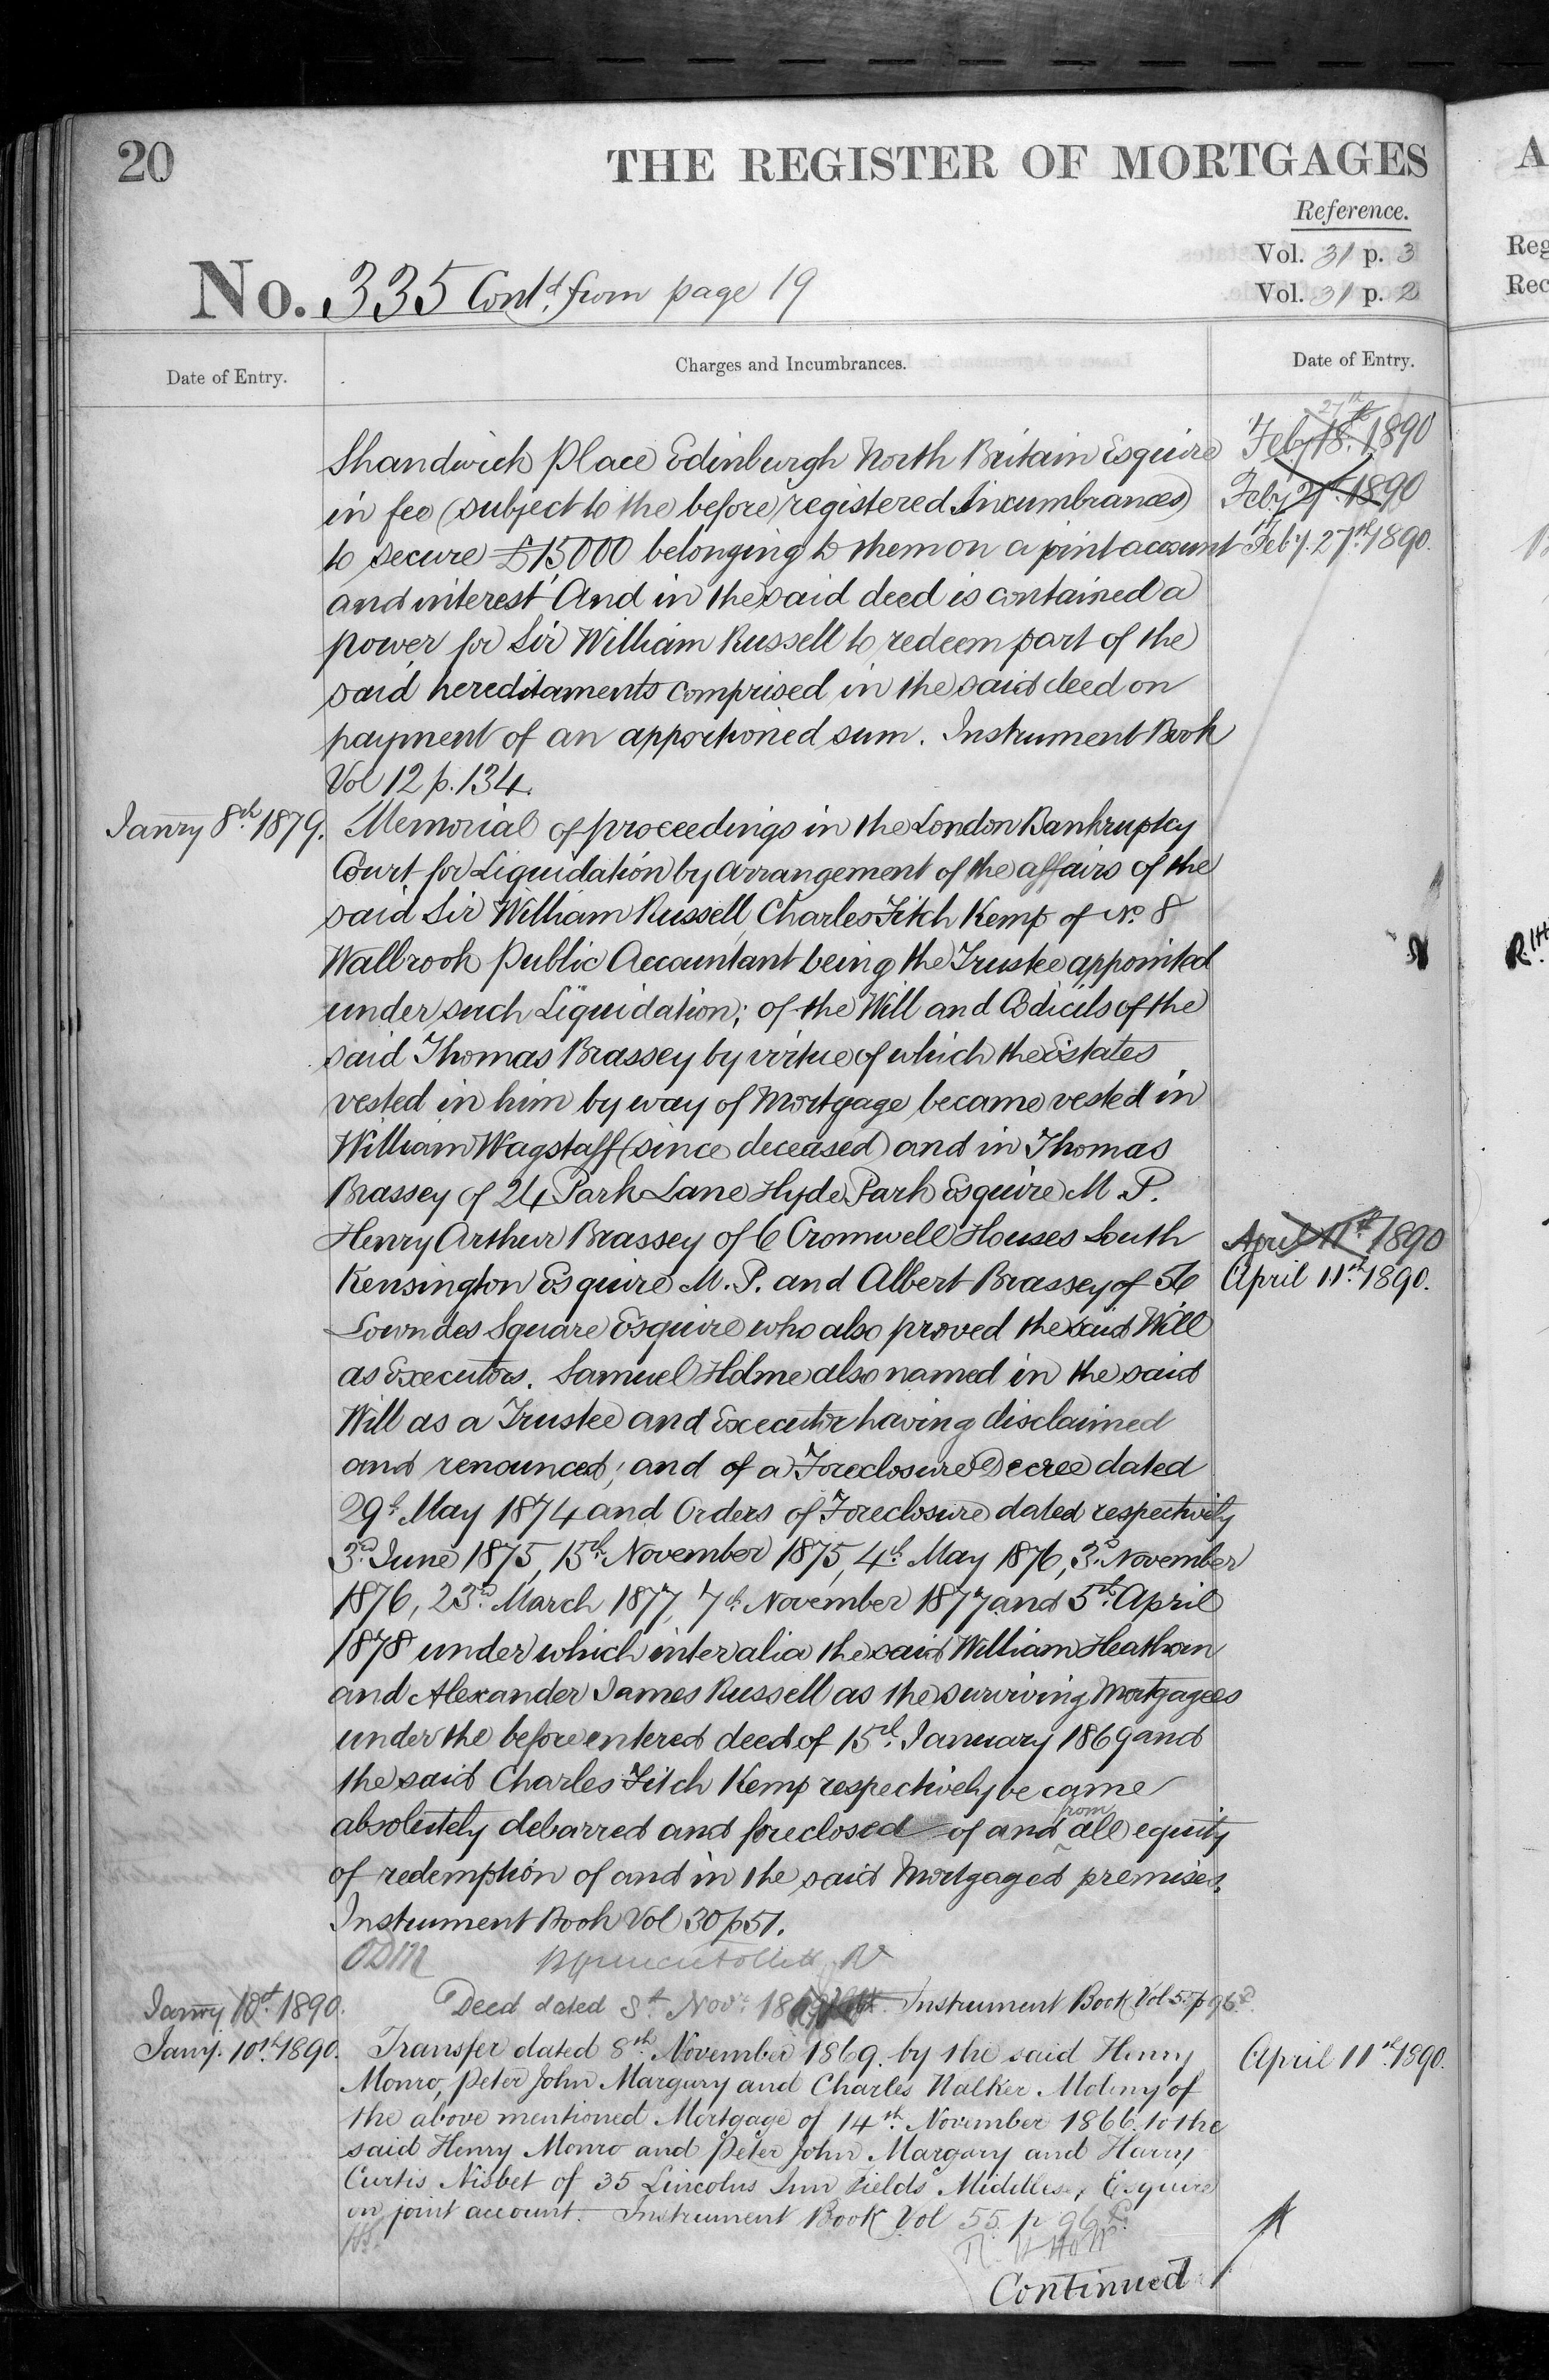 20
THE REGISTER OF MORTGAGES
Reference.
Vol. 31 p. 3
Vol. 31 p. 2
No. 335 Contd. from page 19
Date of Entry.
Charges and Incumbrances.
Date of Entry.
Shandwick Place Edinburgh North Britain Esquire
in fee (subject to the before registered Incumbrances)
to secure £15000 belonging to them on a joint account
and interest And in the said deed is contained a
power for Sir William Russell to redeem part of the
said hereditaments comprised in the said deed on
payment of an apportioned sum. Instrument Book
Vol 12 p. 134.
Janry 8th 1879. Memorial of proceedings in the London Bankruptcy
Court for Liquidation by arrangement of the affairs of the
said Sir William Russell, Charles Fitch Kemp of No. 8
Wallbrook Public Accountant being the Trustee appointed
under such Liquidation; of the Will and Codicils of the
said Thomas Brassey by virtue of which the Estates
vested in him by way of Mortgage became vested in
William Wagstaff (since deceased) and in Thomas
Brassey of 24 Park Lane Hyde Park Esquire M.P.
Henry Arthur Brassey of 6 Cromwell Houses South
Kensington Esquire M.P. and Albert Brassey of 56
Lowndes Square Esquire who also proved the said Will
as Executors. Samuel Holme also named in the said
Will as a Trustee and Executor having disclaimed
and renounced; and of a Foreclosure Decree dated
29th May 1874 and Orders of Foreclosure dated respectively
3rd June 1875, 15th November 1875, 4th May 1876, 3rd November
1876, 23rd March 1877, 7th November 1877 and 5th April
1878 under which inter alia the said William Heathorn
and Alexander James Russell as the surviving Mortgagees
under the before entered deed of 15th January 1869 and
the said Charles Fitch Kemp respectively became
absolutely debarred and foreclosed of and from all equity
of redemption of and in the said Mortgaged premises.
Instrument Book Vol 30 p 51.
Janry 10th 1890. Deed dated 8th Novr. Instrument Book Vol 55 p 96
Jany. 10th 1890. Transfer dated 8th November 1869. by the said Henry
Monro, Peter John Margary and Charles Walker Moleny of
the above mentioned Mortgage of 14th November 1866. to the
said Henry Monro and Peter John Margary and Harry
Curtis Nisbet of 35 Lincolns Inn Fields Middlesex, Esquire
on joint account. Instrument Book Vol 55 p 96
Continued
Feby 18th 1890
27th
Feby 27th 1890
Feby. 27th 1890.
April 11th 1890
April 11th 1890.
April 11th 1890.
A
Reg
Rec